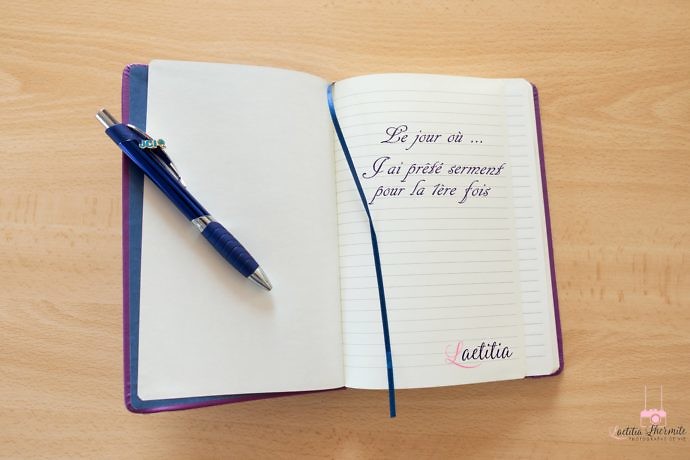 Le jour où ...
J'ai prêté serment
pour la 1ère fois
Laetitia
JCI
Laetitia Lhermite
PHOTOGRAPHE DE VIE